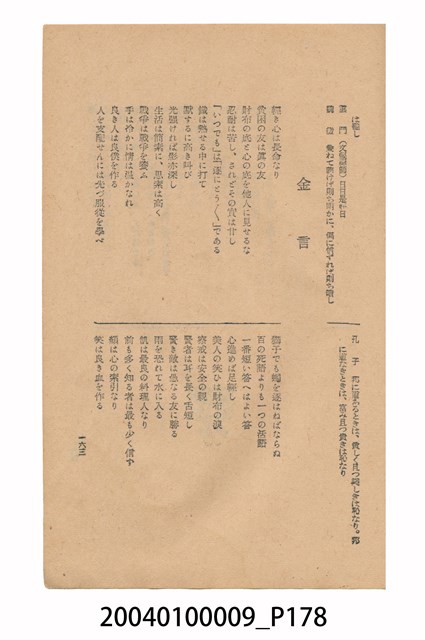 に暗し
雲門(文偃禪師)日日是好日
魏徴 兼ねて聽けば則ち明かに、偏に信ずれば則ち暗し
孔子 邦に道あるときは、貧しく且つ賤しきは恥なり。邦
に道なきときは、富み且つ貴きは恥なり
金言
輕き心は長命なり
貧困の友は眞の友
財布の底と心の底を他人に見せるな
忍耐は苦し、されどその實は甘し
「いつでも」は「遂にとう〱」である
鐵は熱せる中に打て
默するに高き叫び
光强ければ影亦深し
生活は簡素に、思索は高く
戰爭は戰爭を養ふ
手は冷かに情は温かなれ
良き人は良僕を作る
人を支配せんには先づ服從を學べ
獅子でも蠅を逐はねばならぬ
百の死語よりも一つの活語
一番短い答へはよい答
心進めば足輕し
美人の笑ひは財布の涙
警戒は安全の親
賢者は耳を長く舌短し
賢き敵は愚なる友に勝る
雨を恐れて水に入る
飢は最良の料理人なり
最も多く知る者は最も少く信ず
顔は心の索引なり
笑は良き血を作る
一六三
20040100009_P178